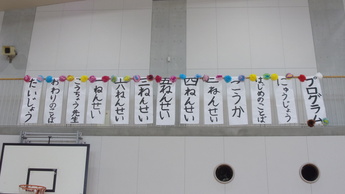 プログラム
にゅうじょう
はじめのことば
こうか
二ねんせい
四ねんせい
五ねんせい
三ねんせい
六ねんせい
一ねんせい
こうちょう先生
おわりのことば
たいじょう